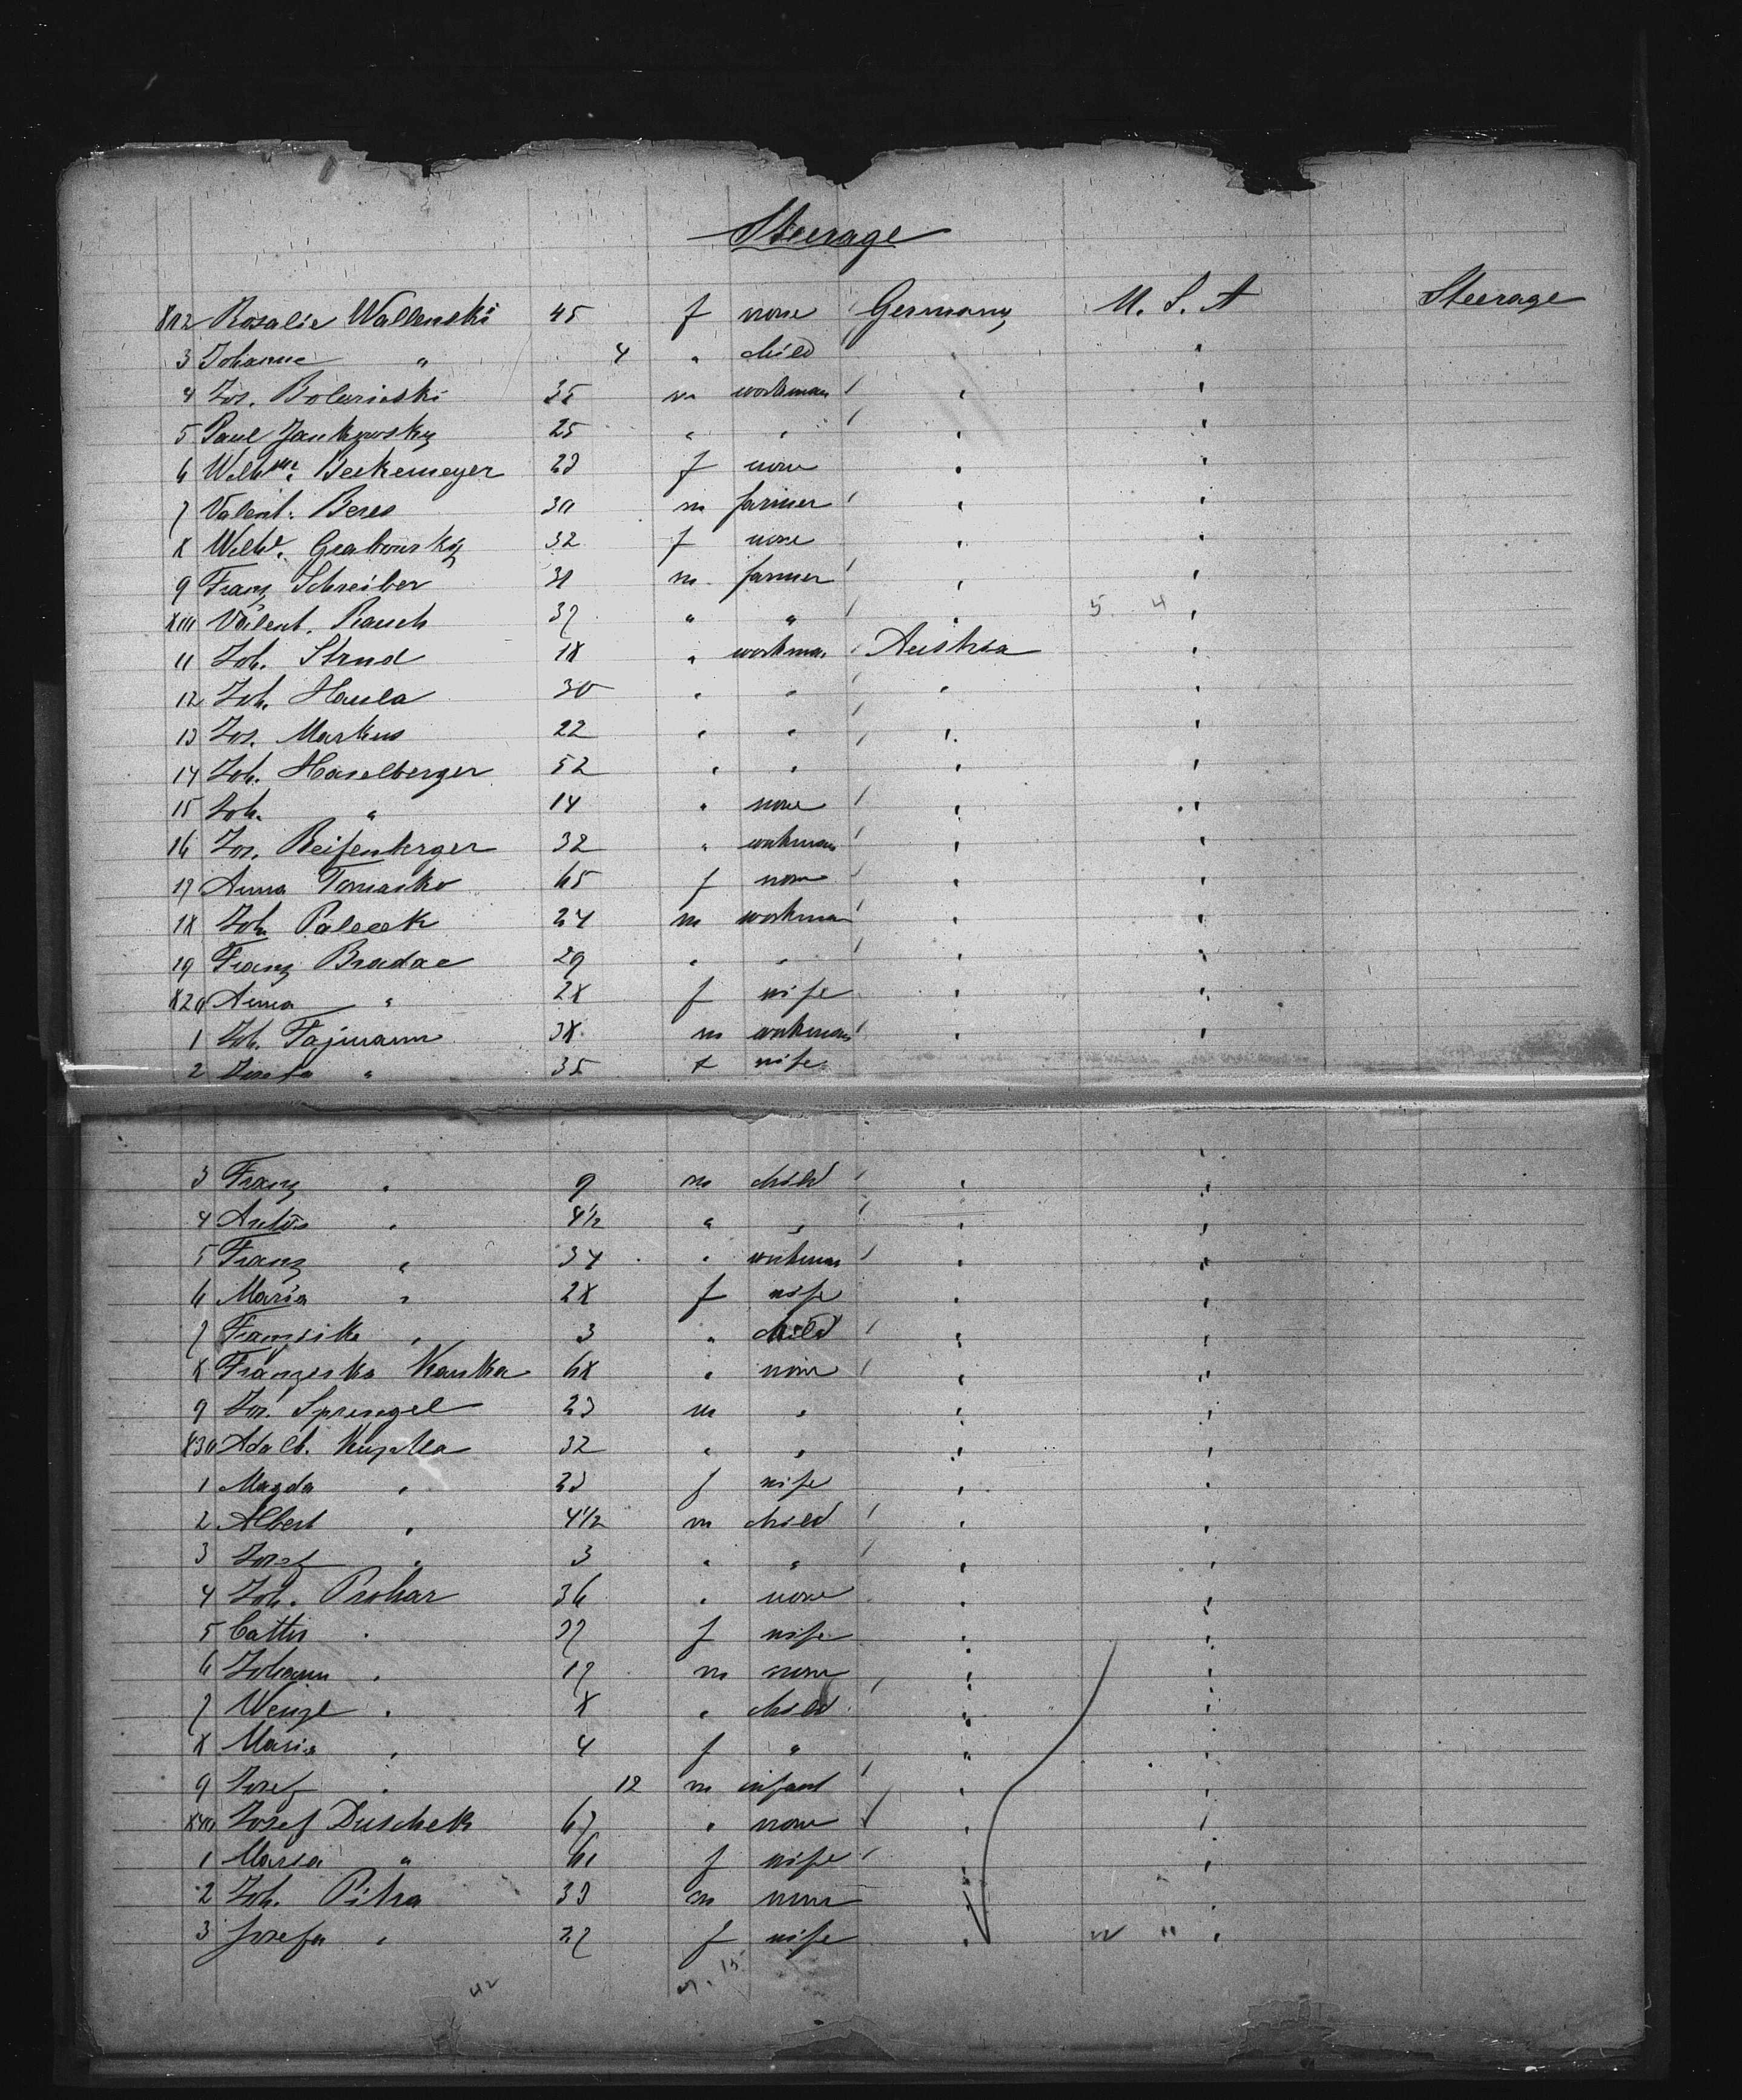 Steerage
802 Rosalie Wallenski 45 f none Germany U. S. A Steerage
3 Johanne " 4 " child " "
4 Jos. Bolarinski 35 m workman " "
5 Paul Jankowsky 25 " " " "
6 Welhme. Beekemeyer 23 f none " "
7 Valent. Beres 30 m farmer " "
8 Welh. Grabowsky 32 f none " "
9 Franz Schreiber 31 m farmer " "
810 Valent. Rauch 37 " " " 5 4 "
11 Joh. Strud 18 " workman Austria "
12 Joh. Hausla 30 " " " "
13 Jos. Markus 22 " " " "
14 Joh. Haselberger 52 " " " "
15 Joh. " 14 " none " "
16 Jos. Reifenberger 32 " workman " "
17 Anna Tomasko 65 f none " "
18 Joh. Palecek 24 m workman " "
19 Franz Bradac 29 " " " "
820 Anna " 28 f wife " "
1 Joh. Fajmann 38 m workman " "
2 Josefa " 35 f wife
3 Franz " 9 m child " "
4 Anton " 4½ " " " "
5 Franz " 34 " workman " "
6 Maria " 28 f wife " "
7 " 3 " child " "
8 Franziska Kauska 68 " none " "
9 Jos. Sprengel 23 m " " "
830 Adalb. Kupka 32 " " " "
1 Magda " 23 f wife " "
2 Albert " 4½ m child " "
3 Josef " 3 " " " "
4 Joh. Prohar 36 " none " "
5 Cattis " 37 f wife " "
6 Johann " 17 m none " "
7 Wenzl " 8 " child " "
8 Maria " 4 f " " "
9 Josef " 12 m infant " "
840 Josef Duschek 67 " none " "
1 Maria " 61 f wife " "
2 Joh. Pitra 33 m none " "
3 Josefa " 27 f wife " "
42